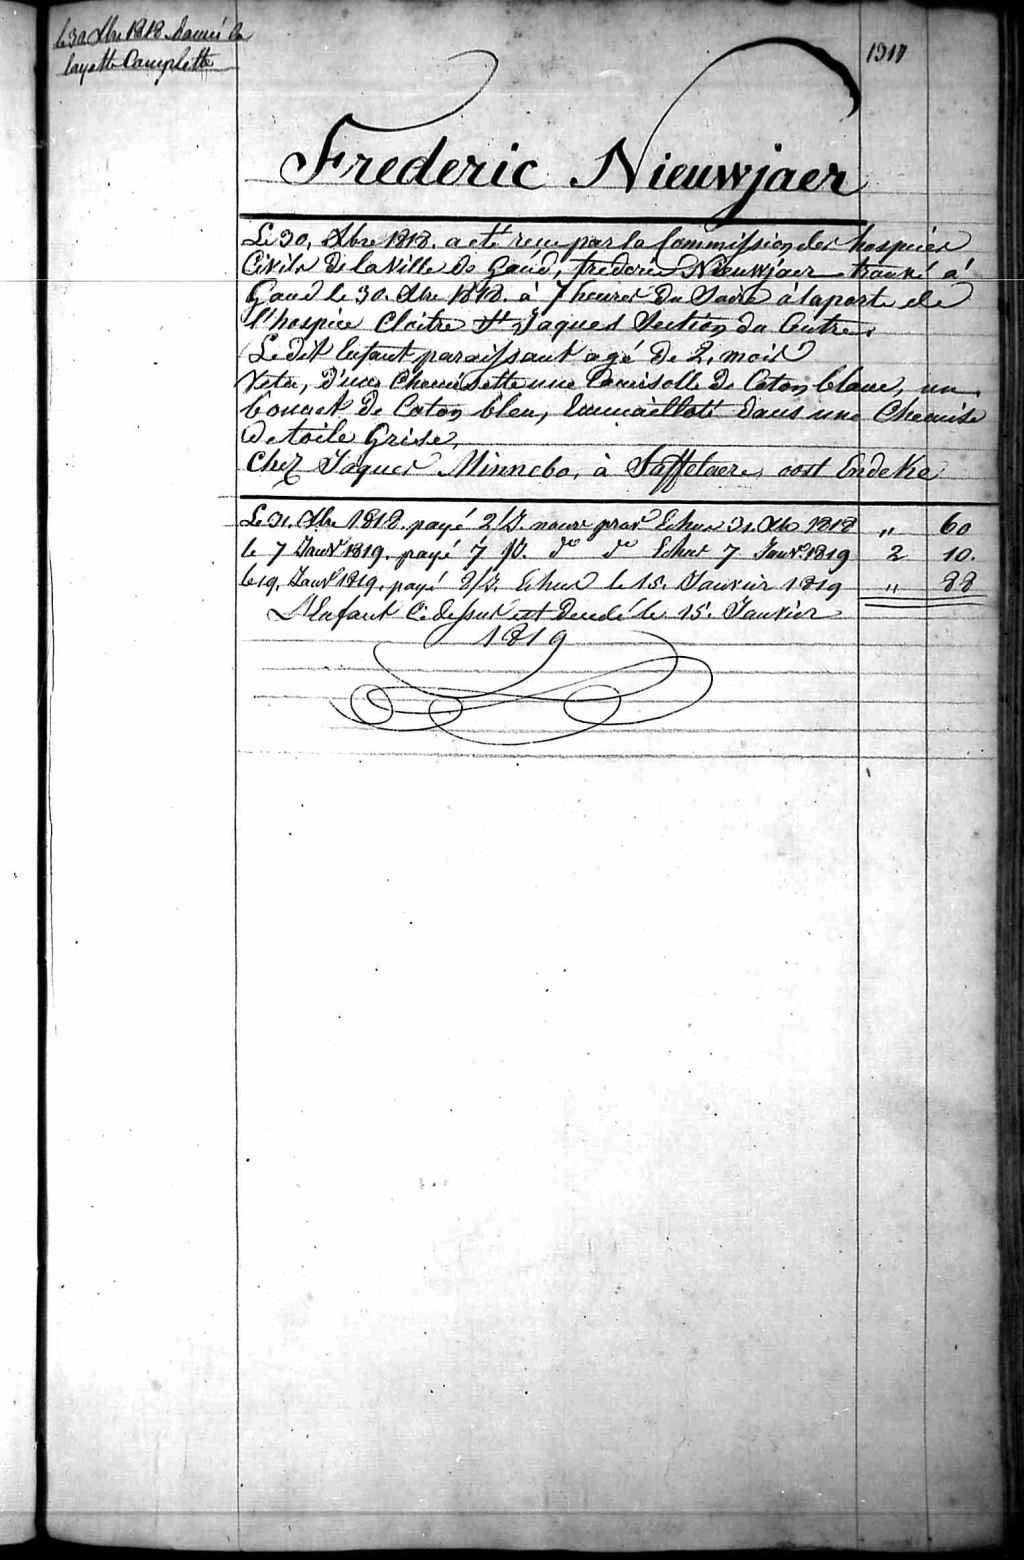 le 30 Xbre 1818. donné la
layette Complette
1311
Frederic Nieuwjaer
Le 30, Xbre 1818. a eté recu par la Commission des hospices
Civils de la Ville de Gand, frederic Nieuwjaer trouvé à
Gand le 30. Xbre 1818. à 7 heures du Soire à la porte de
l'hospice Cloitre St Jaques Section du Centre.
Le dit Enfant paraissant agé de 2, mois
Vetu, d'une Chemisette une Camisolle de Coton blanc, un
bonnet de Coton bleu, Emmailloté dans une Chemise
de toile Grise,
Chez Jaques Minnebo, à Saffelaere, oost Endeke
Le 31. Xbre 1818. payé 2/J. nourr prov Echus 31. Xb 1818 " 60
le 7 Janvr 1819. payé 7 /J. do do Echus 7 Janvr. 1819 2 10.
le 19, Janvr 1819. payé 8/J. Echus le 15. Janvier 1819 " 88
L'Enfant Ci dessus est decedé le 15. Janvier
1819